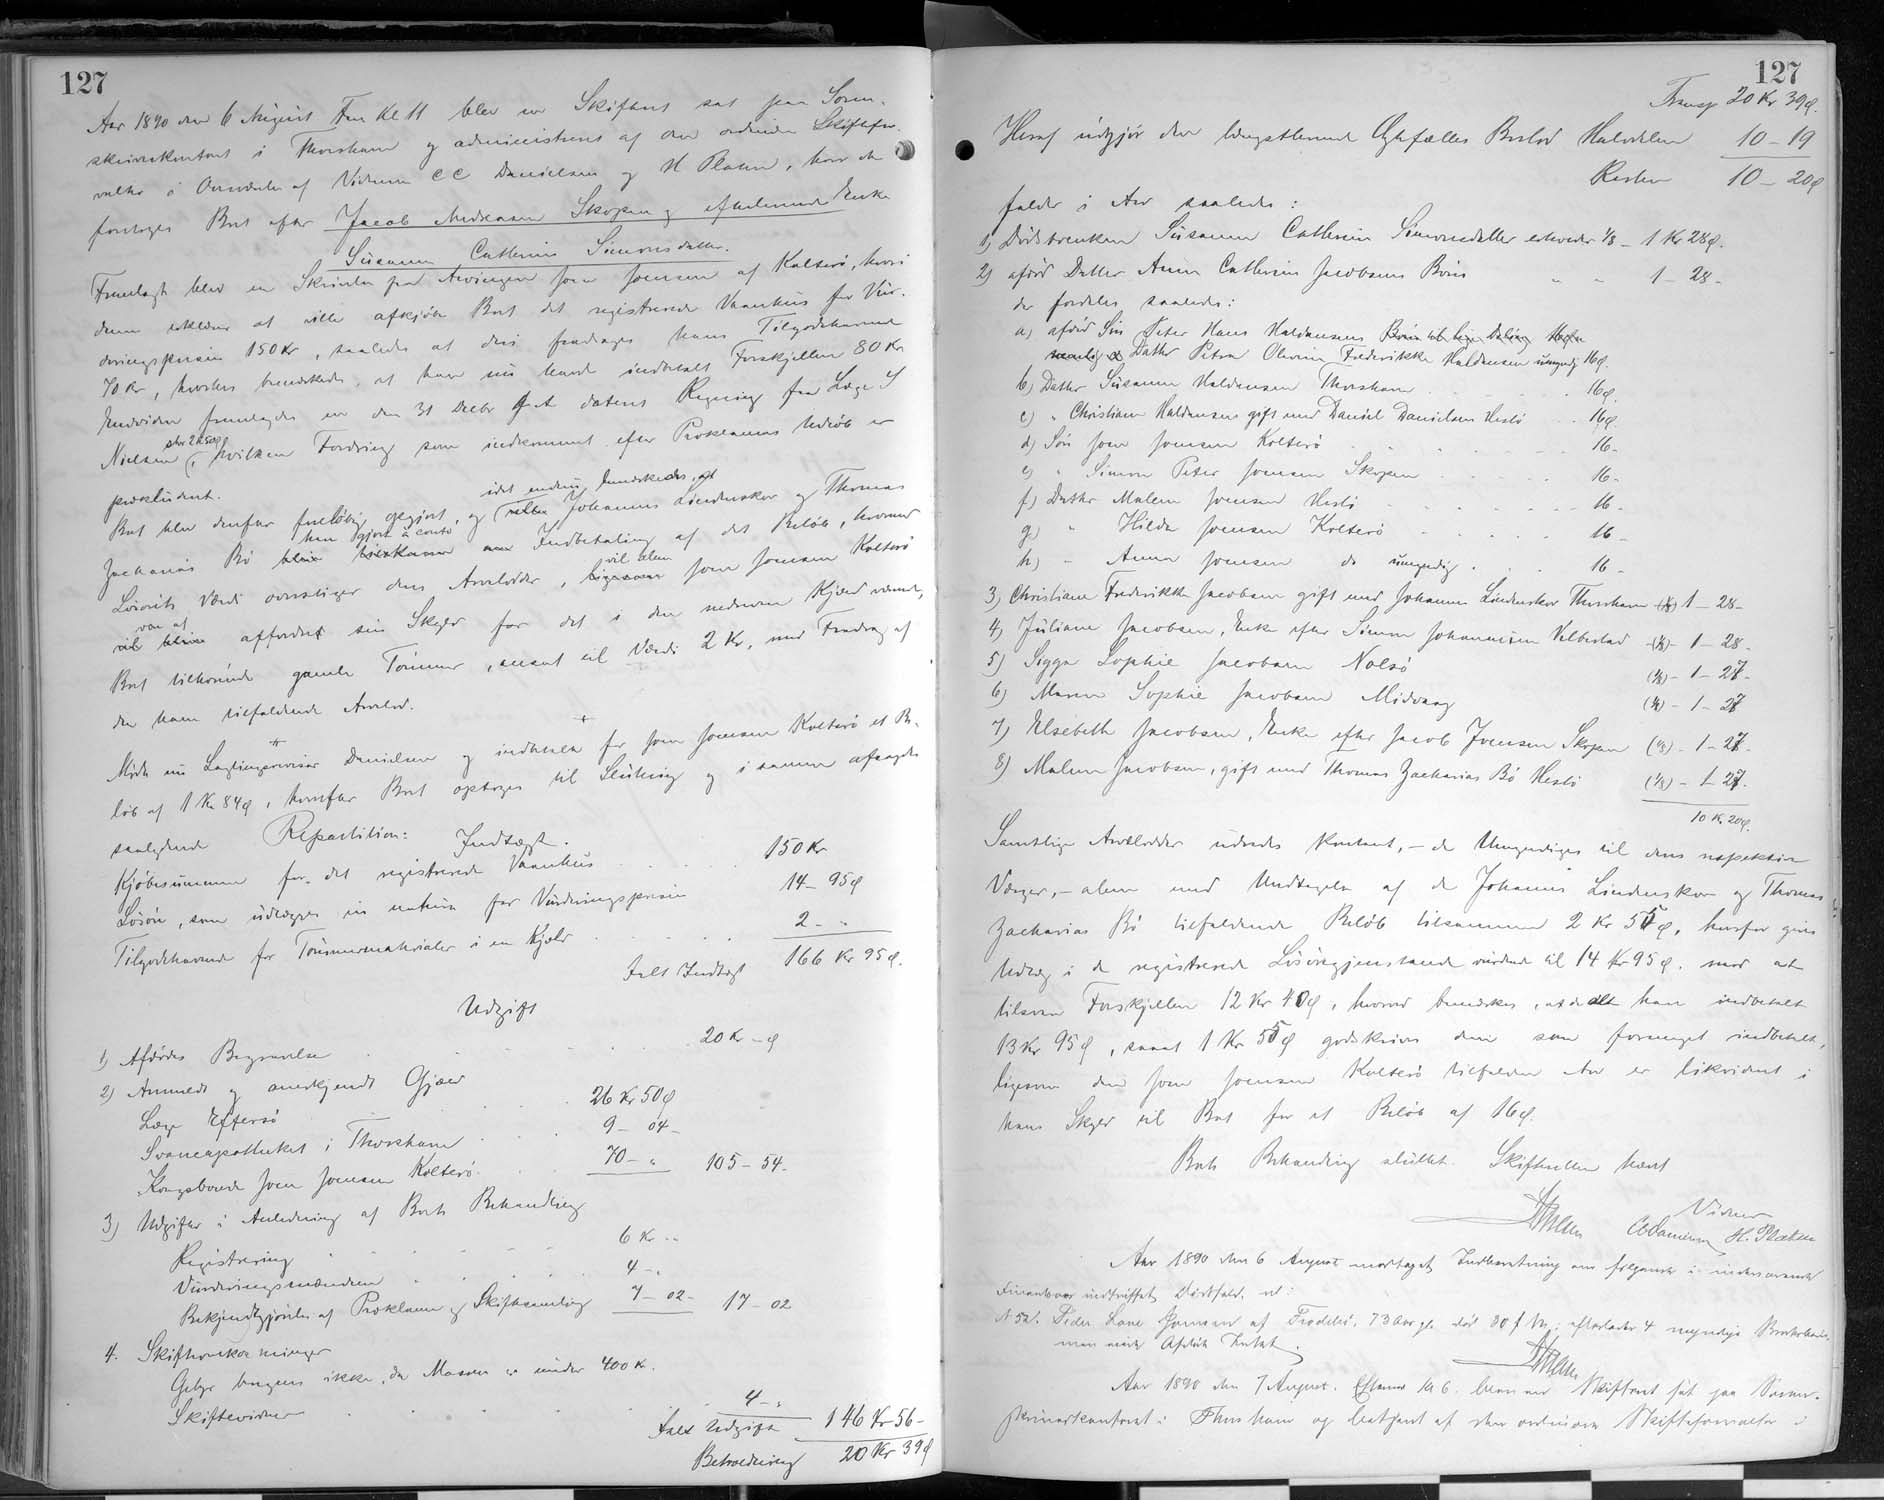 127
Aar 1890 den 6 August Fm Kl 11 blev en Skifteret sat paa Soren-
skriverkontoret i Thorshavn og administreret af den ordinære Skiftefor-
valter i Overværelse af Vidnerne C C Danielsen og H Platen, hvor da
foretoges Boet efter Jacob Andreasen Skopen og efterlevende Enke
Susanne Cathrine Simonsdatter.
Fremlagt blev en Skrivelse fra Arvingen Joen Joensen af Kolterö, hvori
denne erklærer at ville afkjöbe Boet det registrerede Vaanhus for Vur-
deringsprisen 150 Kr, saaledes at deri fradrages hans Tilgodehavende
70 Kr, hvorhos bemærkedes, at han nu havde indbetalt Forskjellen 80 Kr
Endvidere fremlagdes en den 31 Decbr f. A. dateret Regning fra Læge S
Nielsen, hvilken Fordring som indkommet efter Proklamas Udlöb er
prækluderet.
Boet blev derefter foreløbig opgjort, og idet endnu bemærkedes, at Johannes Lindenskov og Thomas
Zacharias Bö har gjort à conto Indbetaling af det Beløb, hvormed
Lösörets Værdi overstiger deres Arvelodder, vil blive Joen Joensen Kolterö
var af affordret sin Skyld for det i den nedrevne Kjæld værende,
Boet tilhörende gamle Tömmer, ansat til Værdi 2 Kr, med Fradrag af
den ham tilfaldende Arvelod.
Mödte nu Lagtingsrevisor Danielsen og indbetalte for Joen Joensen Kolterö et Be-
löb af 1 Kr 84 ø, hvorefter Boet optoges til Slutning og i samme afsagdes
saalydende Repartition:
Indtægt.
Kjöbesummen for det registrerede Vaanhus 150 Kr
Lösöre, som udlægges in natura for Vurderingsprisen 14 - 95 ø
Tilgodehavende for Tömmermaterialer i en Kjæld 2 - "
Ialt Indtægt 166 Kr 95 ø.
Udgift
1) Afdödes Begravelse 20 Kr - ø
2) Anmeldt og anerkjendt Gjæld
Læge Effersö 26 Kr 50 ø
Svaneapotheket i Thorshavn 9 - 04 -
Kongsbonde Joen Joensen Kolterö 70 - " 105 - 54 -
3) Udgifter i Anledning af Boets Behandling
Registrering 6 Kr "
Vurderingsmændene 4 - "
Bekjendtgjörelse af Proklama og Skiftesamling 7 - 02 - 17 - 02
4. Skifteomkostninger
Gebyr beregnes ikke, da Massen er under 400 K.
Skiftevidner 4 - "
Ialt Udgift 146 Kr 56 -
Beholdning 20 Kr 39 ø
127
Transp 20 Kr 39 ø.
Heraf udgjör den længstlevende Ægtefælles Boslod Halvdelen 10 - 19
Resten 10 - 20 ø
falder i Arv saaledes:
1) Dödsboenken Susanne Cathrine Simonsdatter erhverder 1/8 - 1 Kr 28 ø.
2) afdöd Datter Anna Cathrine Jacobsens Börn " " 1 - 28 -
der fordeles saaledes:
a) afdöd Sön Peter Hans Haldansens Börn til lige Deling 16 ø
Datter Petra Olevine Frederikke Haldansen umyndig 16 ø.
b) Datter Susanne Haldansen Thorshavn 16 ø.
c) " Christiane Haldansen gift med Daniel Danielsen Hestö 16 ø.
d) Sön Joen Joensen Kolterö 16 -
e) " Simon Peter Joensen Skopen 16 -
f) Datter Malene Joensen Hestö 16 -
g) " Hilda Joensen Kolterö 16 -
h) " Anna Joensen do umyndig 16 -
3) Christiane Frederikke Jacobsen gift med Johannes Lindenskov Thorshavn (1/8) 1 - 28 -
4) Juliane Jacobsen, Enke efter Simon Johannesen Velbestad (1/8) - 1 - 28 -
5) Sigga Sophie Jacobsen Nolsö (1/8) - 1 - 27 -
6) Maren Sophie Jacobsen Midvaag (1/8) - 1 - 27
7) Elsebeth Jacobsen, Enke efter Jacob Joensen Skopen (1/8) - 1 - 27 -
8) Malene Jacobsen, gift med Thomas Zacharias Bö Hestö (1/8) - 1 - 27 -
10 K. 20 ø.
Samtlige Arvelodder udredes kontant, - de Umyndiges til deres respektive
Værger, - alene med Undtagelse af de Johannes Lindenskov og Thomas
Zacharias Bö tilfaldende Beløb tilsammen 2 Kr 55 ø, hvorfor gives
Udlæg i de registrerede Lösöregjenstande vurderede til 14 Kr 95 ø. mod at
tilsvare Forskjellen 12 Kr 40 ø, hvorved bemærkes, at de alt har indbetalt
13 Kr 95 ø, saaat 1 Kr 55 ø godskrives dem som formeget indbetalt,
ligesom den Joen Joensen Kolterö tilfaldende Arv er likvideret i
hans Skyld til Boet for et Beløb af 16 ø.
Boets Behandling sluttet. Skifteretten hævet
Vidner
CCDanielsen H. Platen
Aar 1890 den 6 August modtaget Indberetning om følgende i nærværende
Finantsaar indtruffet Dödsfald. nl:
N 52. Peder Lave Joensen af Trødelö, 73 Aar gl. död 30 f M; efterlader 4 myndige
Aar 1890 den 7 August. Efterm Kl 6. blev en Skifteret sat paa Soren-
skriverkontoret i Thorshavn og betjent af den ordinære Skifteforvalter i